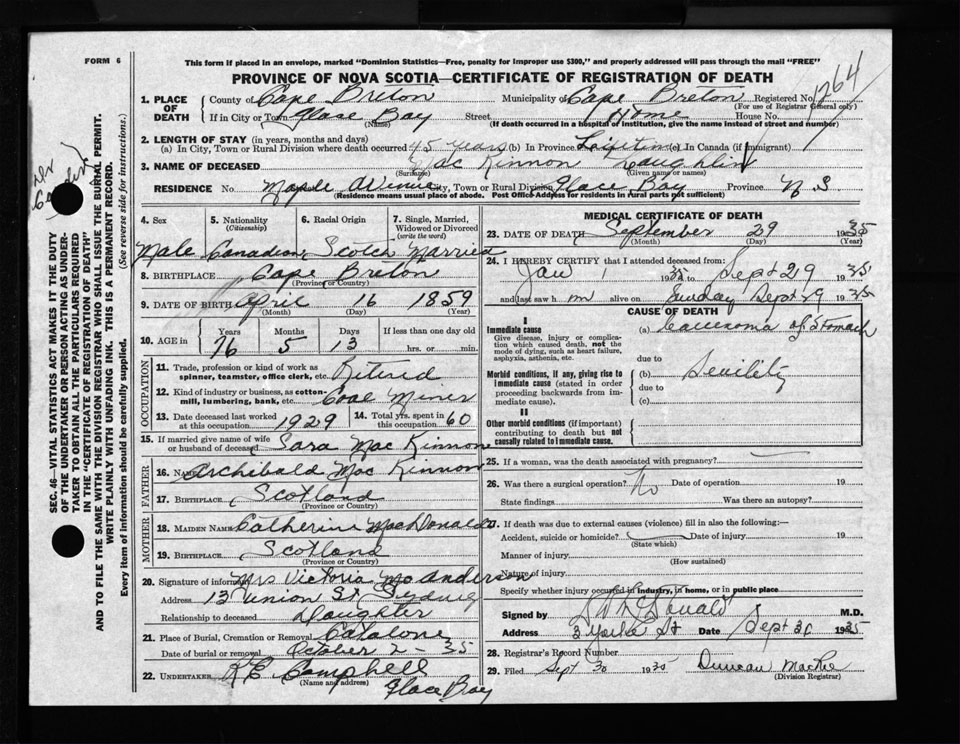 FORM 6
This form if placed in an envelope, marked "Dominion Statistics—Free, penalty for improper use $300," and properly addressed will pass through the mail "FREE"
PROVINCE OF NOVA SCOTIA—CERTIFICATE OF REGISTRATION OF DEATH
1264
1. PLACE OF DEATH County of Cape Breton Municipality of Cape Breton Registered No.
(For use of Registrar General only)
If in City or Town Glace Bay Street Home House No.
(Name) (If death occurred in a hospital or institution, give the name instead of street and number)
2. LENGTH OF STAY (in years, months and days)
(a) In City, Town or Rural Division where death occurred 45 years (b) In Province Lifetime (c) In Canada (if immigrant)
3. NAME OF DECEASED Mac Kinnon Laughlin
(Surname) (Given name or names)
RESIDENCE No. Maple Avenue City, Town or Rural Division Glace Bay Province N S
(Residence means usual place of abode. Post Office Address for residents in rural parts not sufficient)
4. Sex 5. Nationality (Citizenship) 6. Racial Origin 7. Single, Married, Widowed or Divorced (write the word)
Male Canadian Scotch Married
8. BIRTHPLACE Cape Breton
(Province or Country)
9. DATE OF BIRTH April 16 1859
(Month) (Day) (Year)
10. AGE in Years Months Days If less than one day old
76 5 13 hrs. or min.
OCCUPATION
11. Trade, profession or kind of work as spinner, teamster, office clerk, etc. Retired
12. Kind of industry or business, as cotton mill, lumbering, bank, etc. Coal Miner
13. Date deceased last worked at this occupation 1929 14. Total yrs. spent in this occupation 60
15. If married give name of wife or husband of deceased Sara Mac Kinnon
FATHER
16. NAME Archibald Mac Kinnon
17. BIRTHPLACE Scotland
(Province or Country)
MOTHER
18. MAIDEN NAME Catherine MacDonald
19. BIRTHPLACE Scotland
(Province or Country)
20. Signature of informant Mrs Victoria Mc Anderson
Address 13 Union St. Sydney
Relationship to deceased Daughter
21. Place of Burial, Cremation or Removal Catalone
Date of burial or removal October 2 - 35
22. UNDERTAKER Campbell
(Name and address) Glace Bay
MEDICAL CERTIFICATE OF DEATH
23. DATE OF DEATH September 29 1935
(Month) (Day) (Year)
24. I HEREBY CERTIFY that I attended deceased from:
Jan 1 1935 to Sept 29 1935
and last saw h m alive on Sunday Sept 29 1935
CAUSE OF DEATH
I
Immediate cause (a) Carcinoma of Stomach
Give disease, injury or complication which caused death, not the mode of dying, such as heart failure, asphyxia, asthenia, etc.
due to
Morbid conditions, if any, giving rise to immediate cause (stated in order proceeding backwards from immediate cause). (b) Senility
due to
(c)
II
Other morbid conditions (if important) contributing to death but not causally related to immediate cause.
25. If a woman, was the death associated with pregnancy?
26. Was there a surgical operation? No Date of operation 19
State findings Was there an autopsy?
27. If death was due to external causes (violence) fill in also the following:—
Accident, suicide or homicide? Date of injury 19
(State which)
Manner of injury
(How sustained)
Nature of injury
Specify whether injury occurred in industry, in home, or in public place
Signed by M.D.
Address 3 Yorke St Date Sept 30 1935
28. Registrar's Record Number
29. Filed Sept 30 1935 Duncan
(Division Registrar)
SEC. 46—VITAL STATISTICS ACT MAKES IT THE DUTY
OF THE UNDERTAKER OR PERSON ACTING AS UNDER-
TAKER TO OBTAIN ALL THE PARTICULARS REQUIRED
IN THE "CERTIFICATE OF REGISTRATION OF DEATH"
AND TO FILE THE SAME WITH THE DIVISION REGISTRAR WHO SHALL ISSUE THE BURIAL PERMIT.
WRITE PLAINLY WITH UNFADING INK. THIS IS A PERMANENT RECORD.
Every item of information should be carefully supplied. (See reverse side for instructions.)